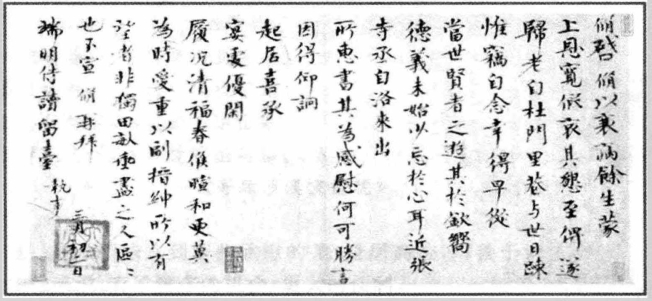 脩啓脩以衰病餘生蒙
上恩寬假哀其懇至俾遂
歸老自杜門里巷与世日疎
惟竊自念幸得早從
當世賢者之遊其於欽嚮
德義未始少忘於心耳近張
寺丞自洛來出
所惠書其為感慰何可勝言
因得仰詢
起居喜承
宴處優閑
履況清福春候暄和更冀
為時愛重以副搢紳所以有
望者非獨田畝垂盡之人區々
也不宣 脩再拜
端明侍讀留臺 執事
三月初二日